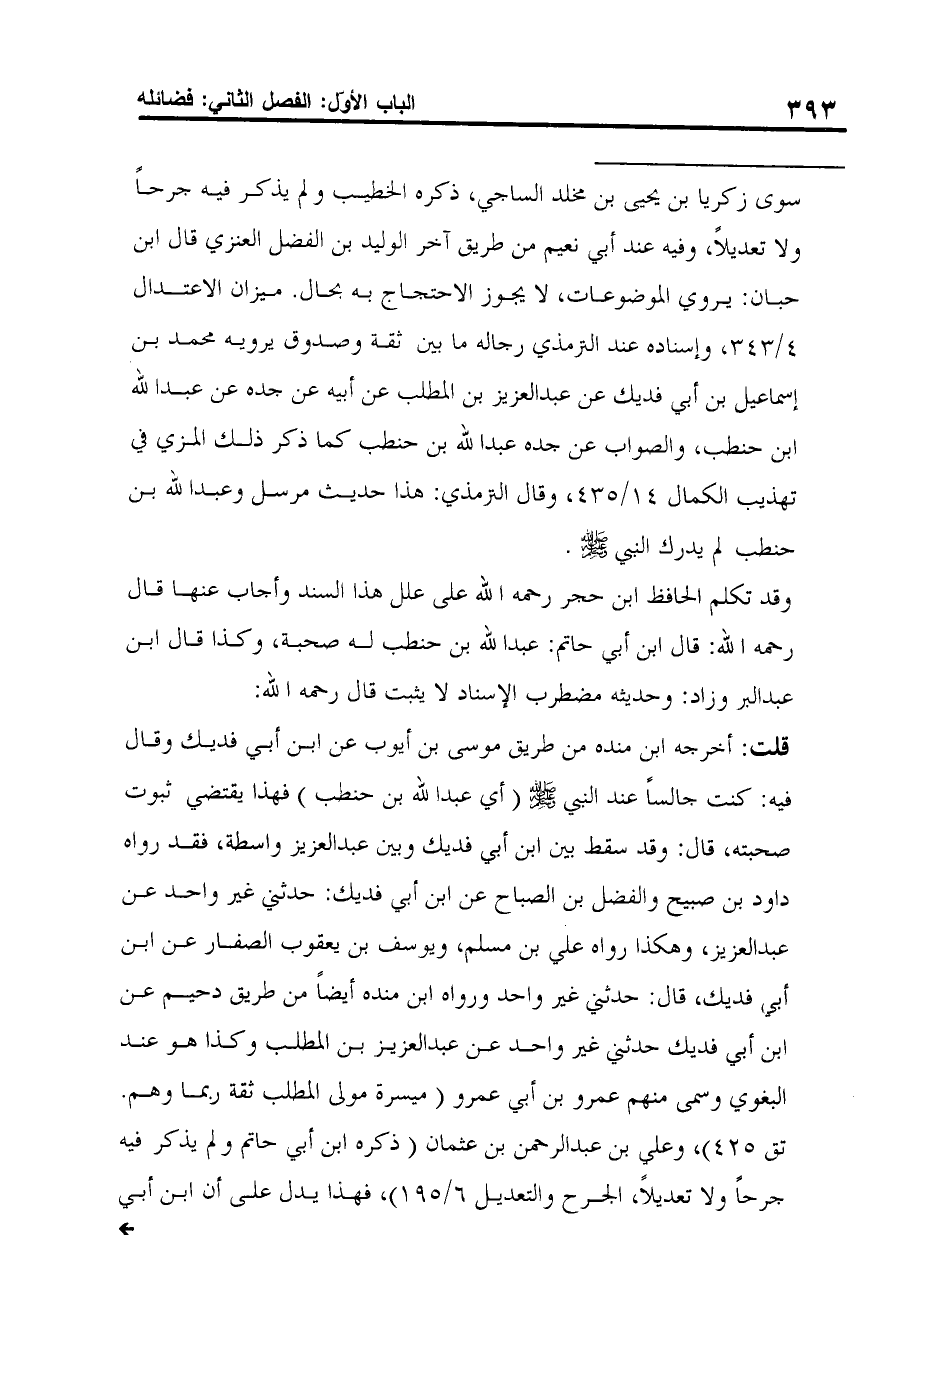 ٣٩٣ الباب الأول: الفصل الثاني: فضائله
سوى زكريا بن يحيى بن مخلد الساجي، ذكره الخطيب ولم يذكر فيه جرحاً
ولا تعديلاً، وفيه عند أبي نعيم من طريق آخر الوليد بن الفضل العنزي قال ابن
حبان: يروي الموضوعات، لا يجوز الاحتجاج به بحال. ميزان الاعتدال
٣٤٣/٤، وإسناده عند الترمذي رجاله ما بين ثقة وصدوق يرويه محمد بن
إسماعيل بن أبي فديك عن عبدالعزيز بن المطلب عن أبيه عن جده عن عبدالله
ابن حنطب، والصواب عن جده عبدالله بن حنطب كما ذكر ذلك المزي في
تهذيب الكمال ٤٣٥/١٤، وقال الترمذي: هذا حديث مرسل وعبدالله بن
حنطب لم يدرك النبي ﷺ .
وقد تكلم الحافظ ابن حجر رحمه الله على علل هذا السند وأجاب عنها قال
رحمه الله: قال ابن أبي حاتم: عبدالله بن حنطب له صحبة، وكذا قال ابن
عبدالبر وزاد: وحديثه مضطرب الإسناد لا يثبت قال رحمه الله:
قلت: أخرجه ابن منده من طريق موسى بن أيوب عن ابن أبي فديك وقال
فيه: كنت جالساً عند النبي ﷺ ( أي عبدالله بن حنطب ) فهذا يقتضي ثبوت
صحبته، قال: وقد سقط بين ابن أبي فديك وبين عبدالعزيز واسطة، فقد رواه
داود بن صبيح والفضل بن الصباح عن ابن أبي فديك: حدثني غير واحد عن
عبدالعزيز، وهكذا رواه علي بن مسلم، ويوسف بن يعقوب الصفار عن ابن
أبي فديك، قال: حدثني غير واحد ورواه ابن منده أيضاً من طريق دحيم عن
ابن أبي فديك حدثني غير واحد عن عبدالعزيز بن المطلب وكذا هو عند
البغوي وسمى منهم عمرو بن أبي عمرو ( ميسرة مولى المطلب ثقة ربما وهم.
تق ٤٢٥)، وعلي بن عبدالرحمن بن عثمان ( ذكره ابن أبي حاتم ولم يذكر فيه
جرحاً ولا تعديلاً، الجرح والتعديل ١٩٥/٦)، فهذا يدل على أن ابن أبي
←